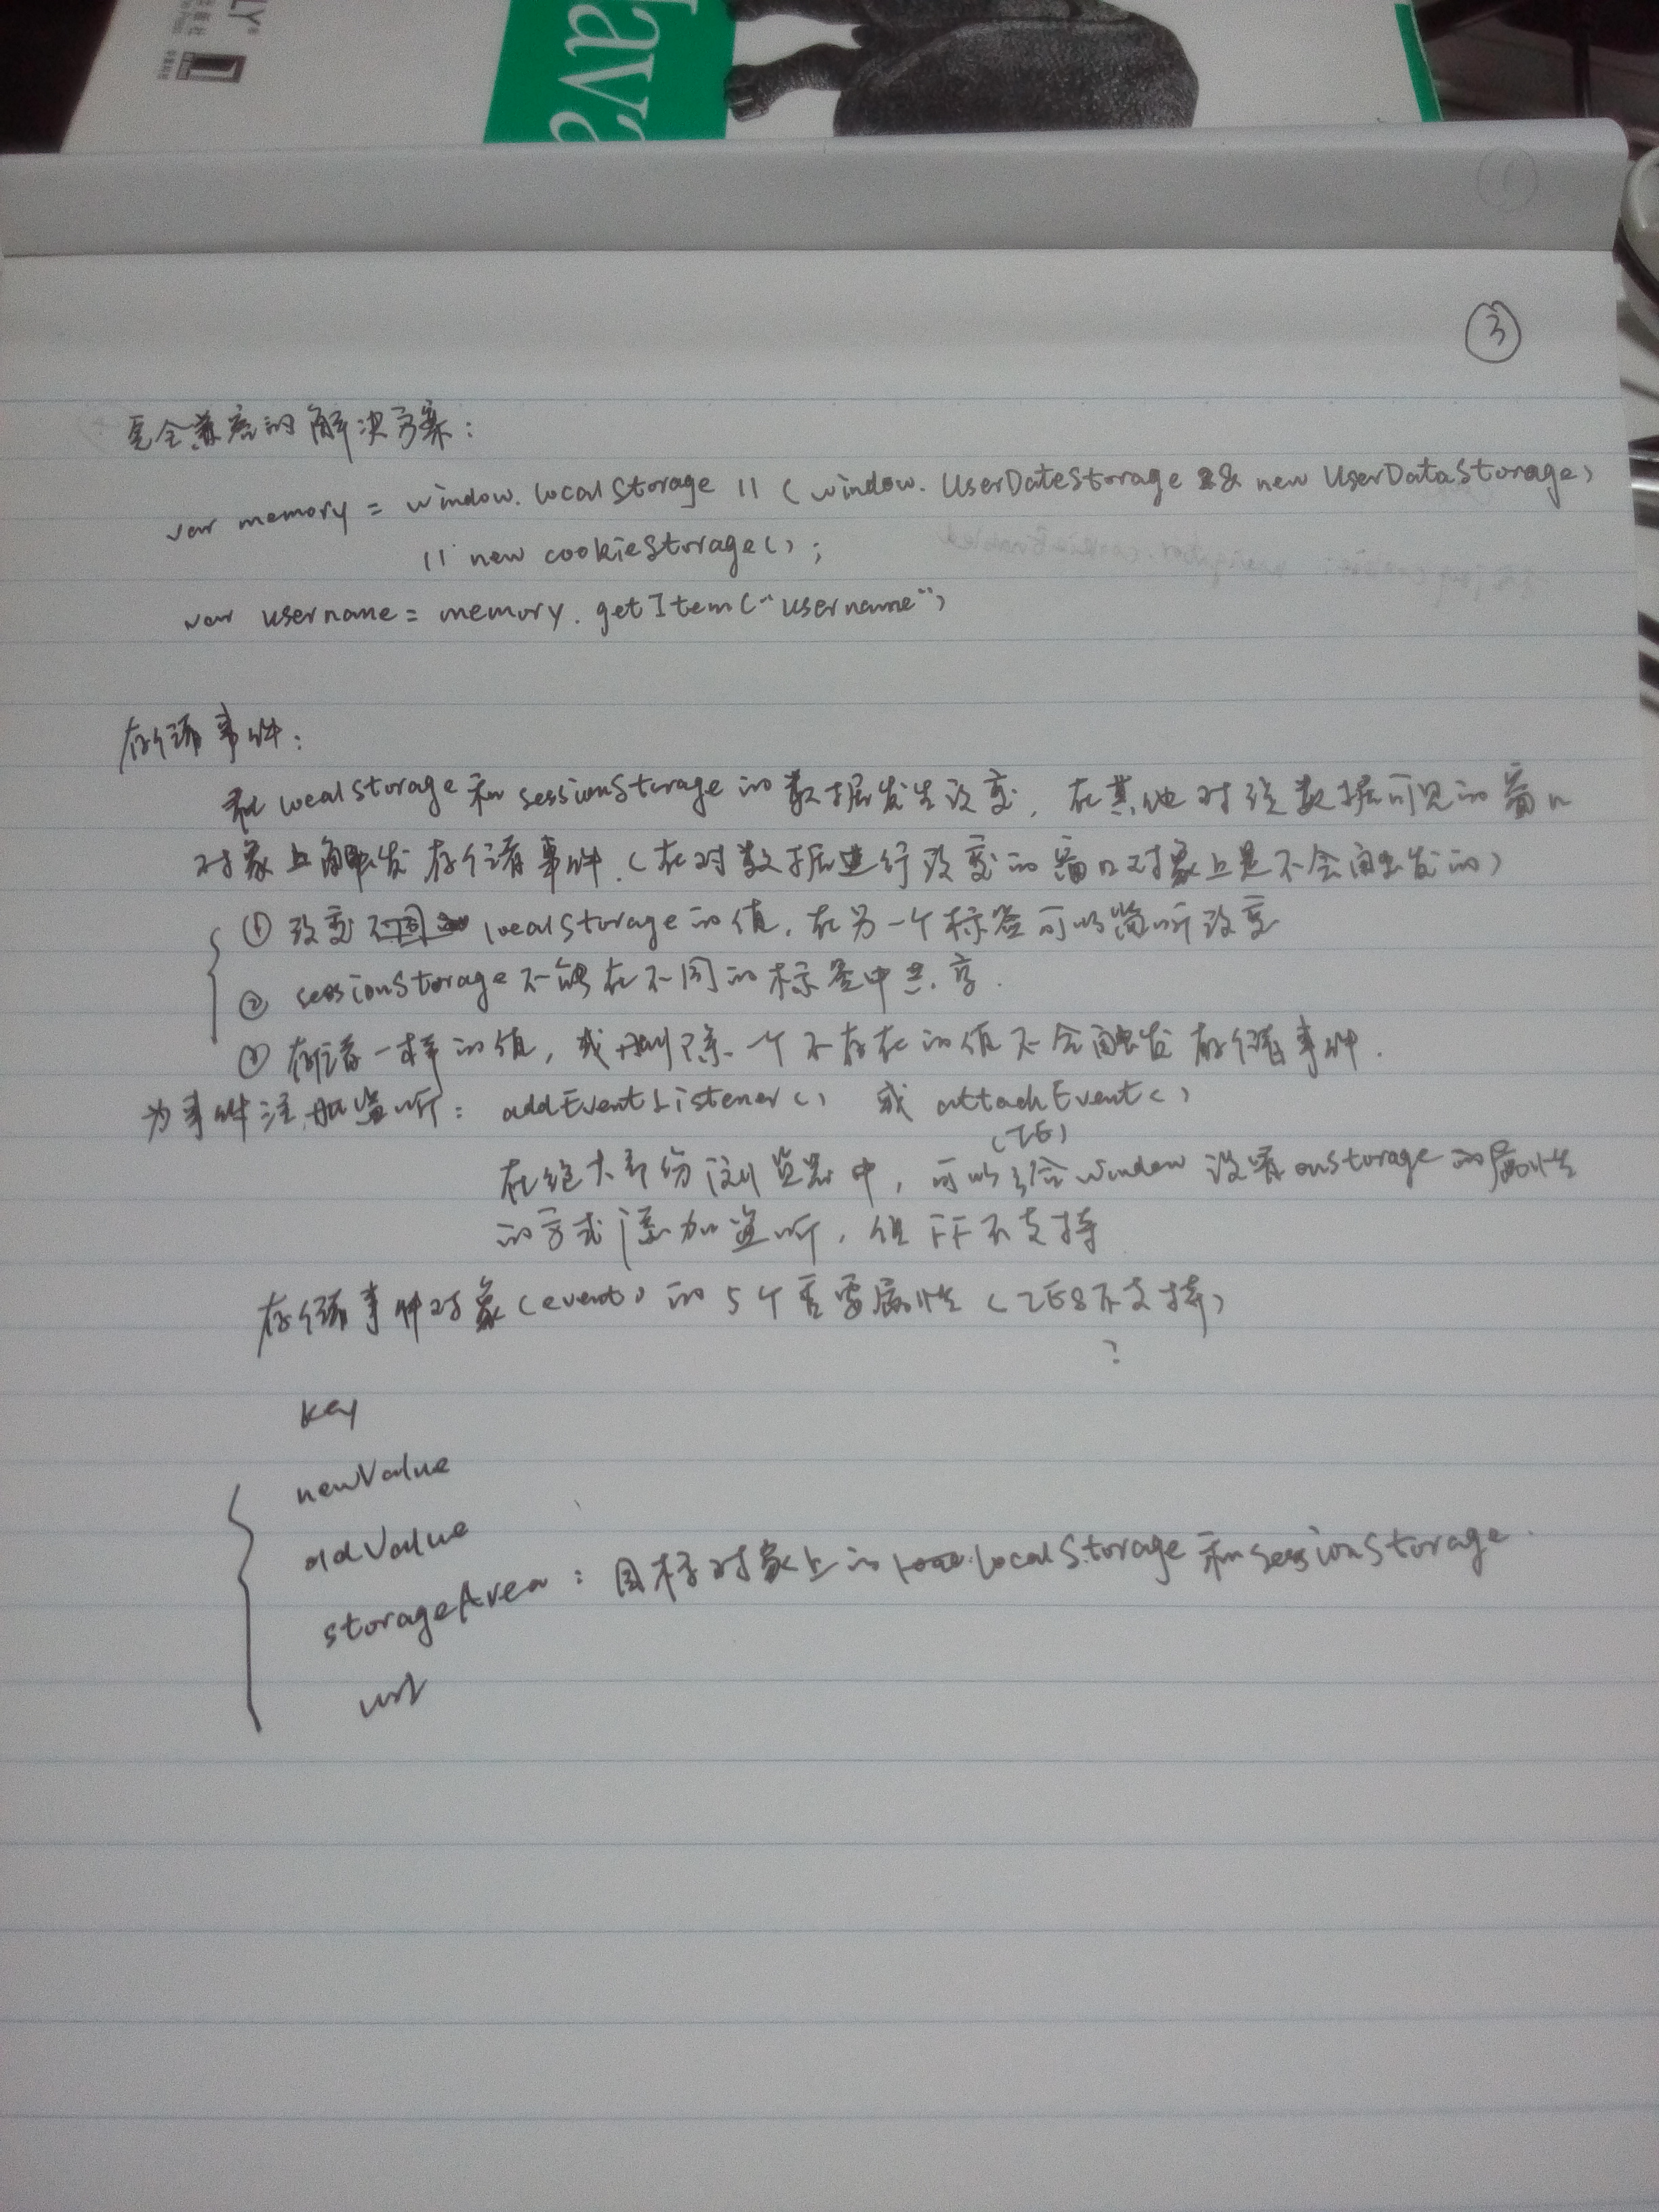 LY
Java
③
完全兼容的解决方案：
var memory = window.localStorage || (window.UserDateStorage && new UserDataStorage)
|| new cookieStorage();
var username = memory.getItem("username")
存储事件：
localStorage和sessionStorage的数据发生改变，在其他对该数据可见的窗口
对象上触发存储事件.（在对数据进行改变的窗口对象上是不会触发的）
① 改变 localStorage的值，在另一个标签可以监听改变
② sessionStorage不能在不同的标签中共享.
③ 存储一样的值，或删除一个不存在的值不会触发存储事件.
为事件注册监听：addEventListener() 或 attachEvent()
(IE)
在绝大部份浏览器中，可以给window设置onstorage的属性
的方式添加监听，但FF不支持
存储事件对象(event)的5个重要属性（IE8不支持）
?
key
newValue
oldValue
storageArea：目标对象上的localStorage和sessionStorage.
url